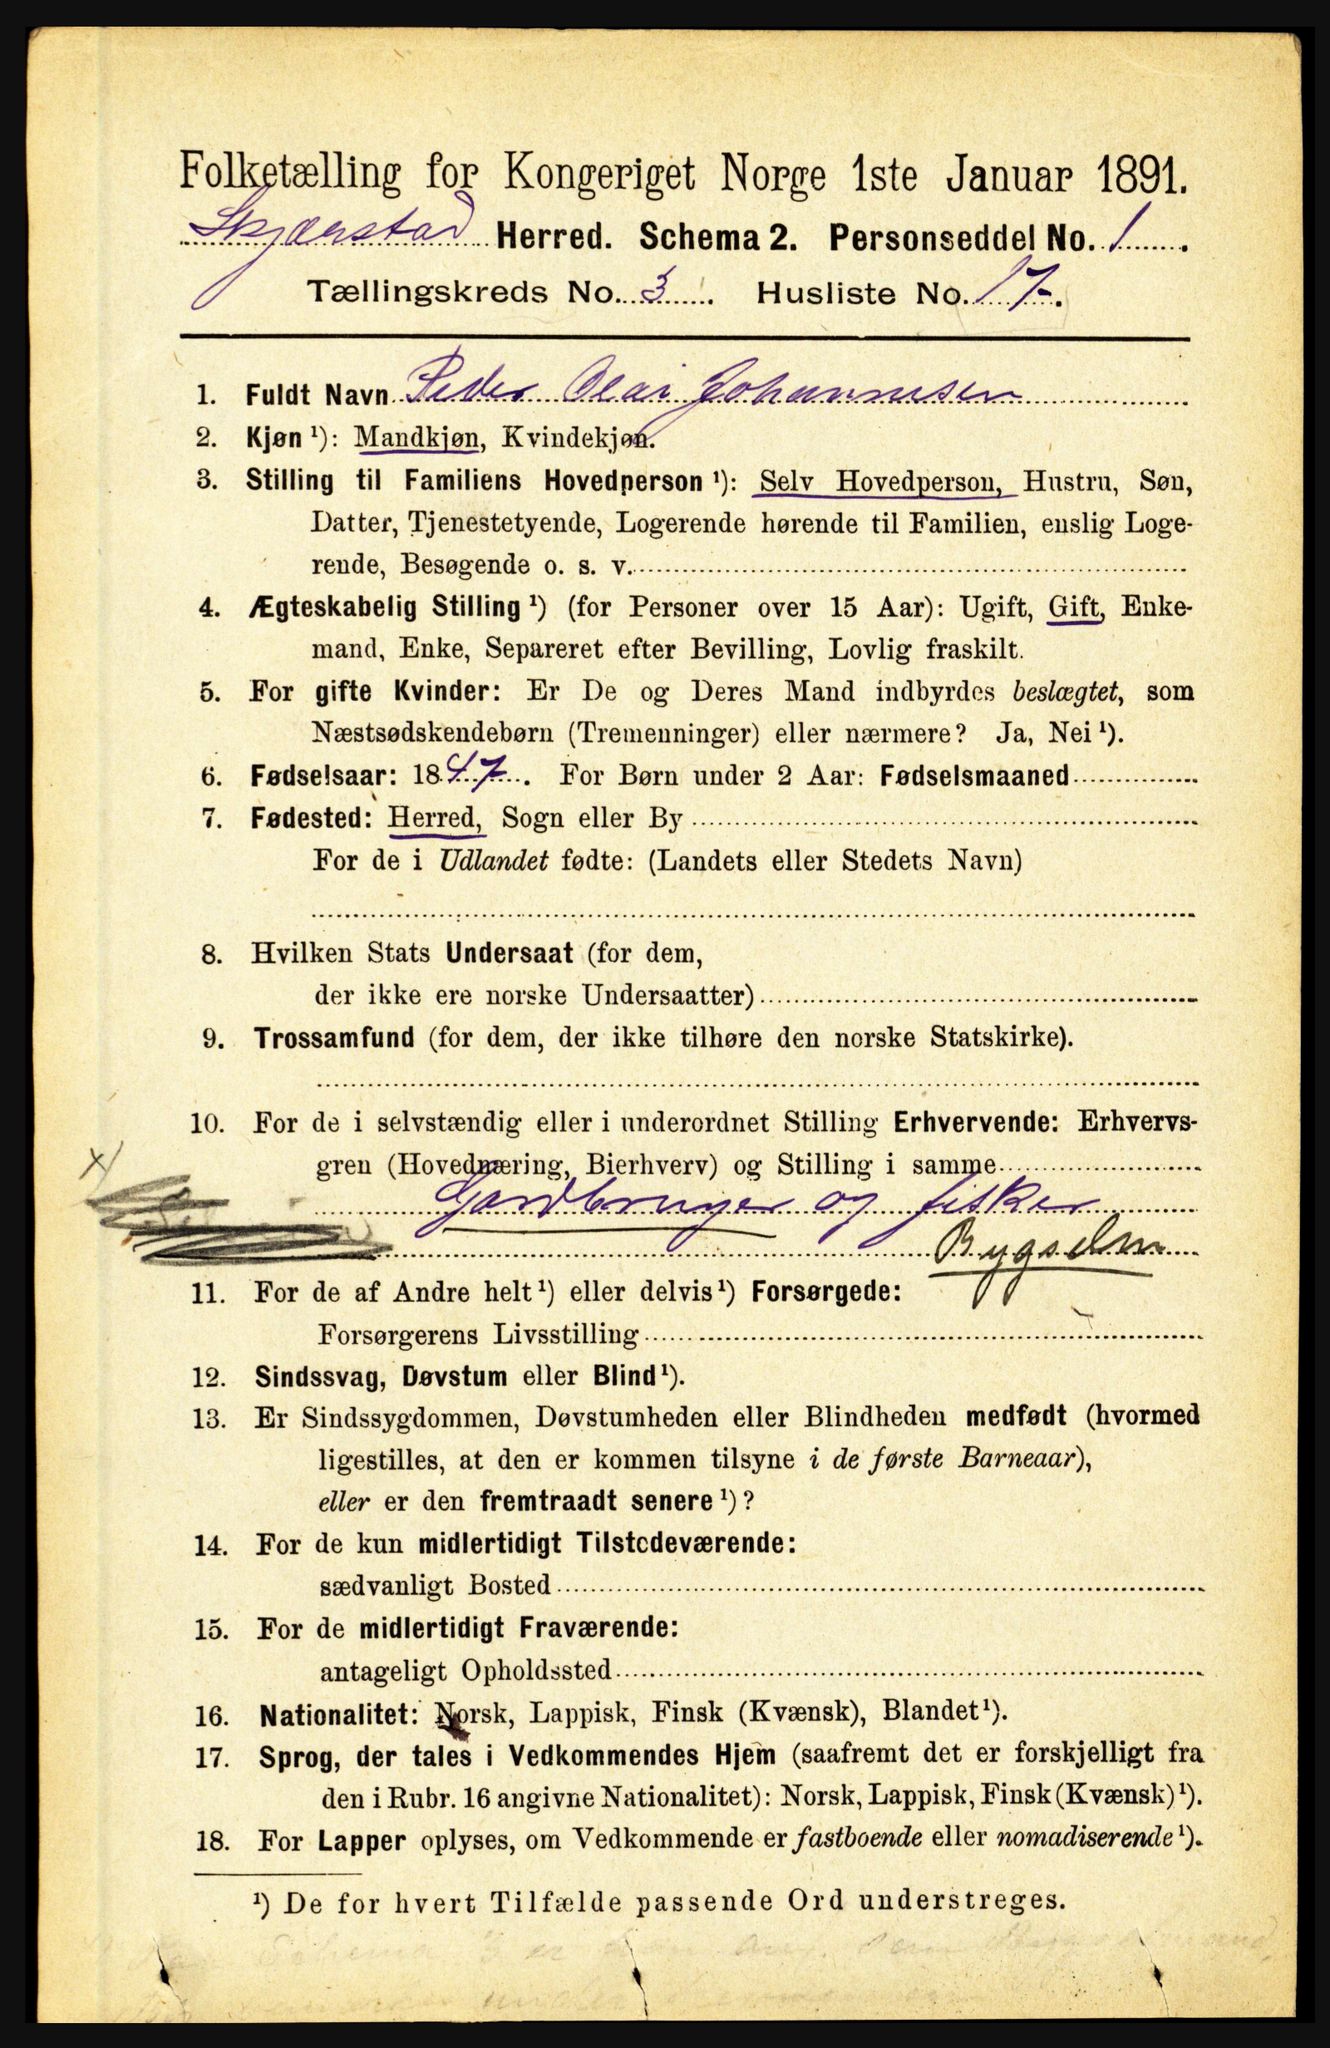 Folketælling for Kongeriget Norge 1ste Januar 1891.
Skjerstad Herred. Schema 2. Personseddel No. 1.
Tællingskreds No. 3. Husliste No. 17.
1. Fuldt Navn Peder Olai Johannesen
2. Kjøn ¹): Mandkjøn, Kvindekjøn.
3. Stilling til Familiens Hovedperson ¹): Selv Hovedperson, Hustru, Søn,
Datter, Tjenestetyende, Logerende hørende til Familien, enslig Loge-
rende, Besøgende o. s. v.
4. Ægteskabelig Stilling ¹) (for Personer over 15 Aar): Ugift, Gift, Enke-
mand, Enke, Separeret efter Bevilling, Lovlig fraskilt.
5. For gifte Kvinder: Er De og Deres Mand indbyrdes beslægtet, som
Næstsødskendebørn (Tremenninger) eller nærmere? Ja, Nei ¹).
6. Fødselsaar: 1847. For Børn under 2 Aar: Fødselsmaaned
7. Fødested: Herred, Sogn eller By
For de i Udlandet fødte: (Landets eller Stedets Navn)
8. Hvilken Stats Undersaat (for dem,
der ikke ere norske Undersaatter)
9. Trossamfund (for dem, der ikke tilhøre den norske Statskirke).
10. For de i selvstændig eller i underordnet Stilling Erhvervende: Erhvervs-
x) gren (Hovednæring, Bierhverv) og Stilling i samme
Gardbruger og fisker
Bygselm
11. For de af Andre helt ¹) eller delvis ¹) Forsørgede:
Forsørgerens Livsstilling
12. Sindssvag, Døvstum eller Blind ¹).
13. Er Sindssygdommen, Døvstumheden eller Blindheden medfødt (hvormed
ligestilles, at den er kommen tilsyne i de første Barneaar),
eller er den fremtraadt senere ¹)?
14. For de kun midlertidigt Tilstedeværende:
sædvanligt Bosted
15. For de midlertidigt Fraværende:
antageligt Opholdssted
16. Nationalitet: Norsk, Lappisk, Finsk (Kvænsk), Blandet ¹).
17. Sprog, der tales i Vedkommendes Hjem (saafremt det er forskjelligt fra
den i Rubr. 16 angivne Nationalitet): Norsk, Lappisk, Finsk (Kvænsk) ¹).
18. For Lapper oplyses, om Vedkommende er fastboende eller nomadiserende ¹).
¹) De for hvert Tilfælde passende Ord understreges.
Schema
under